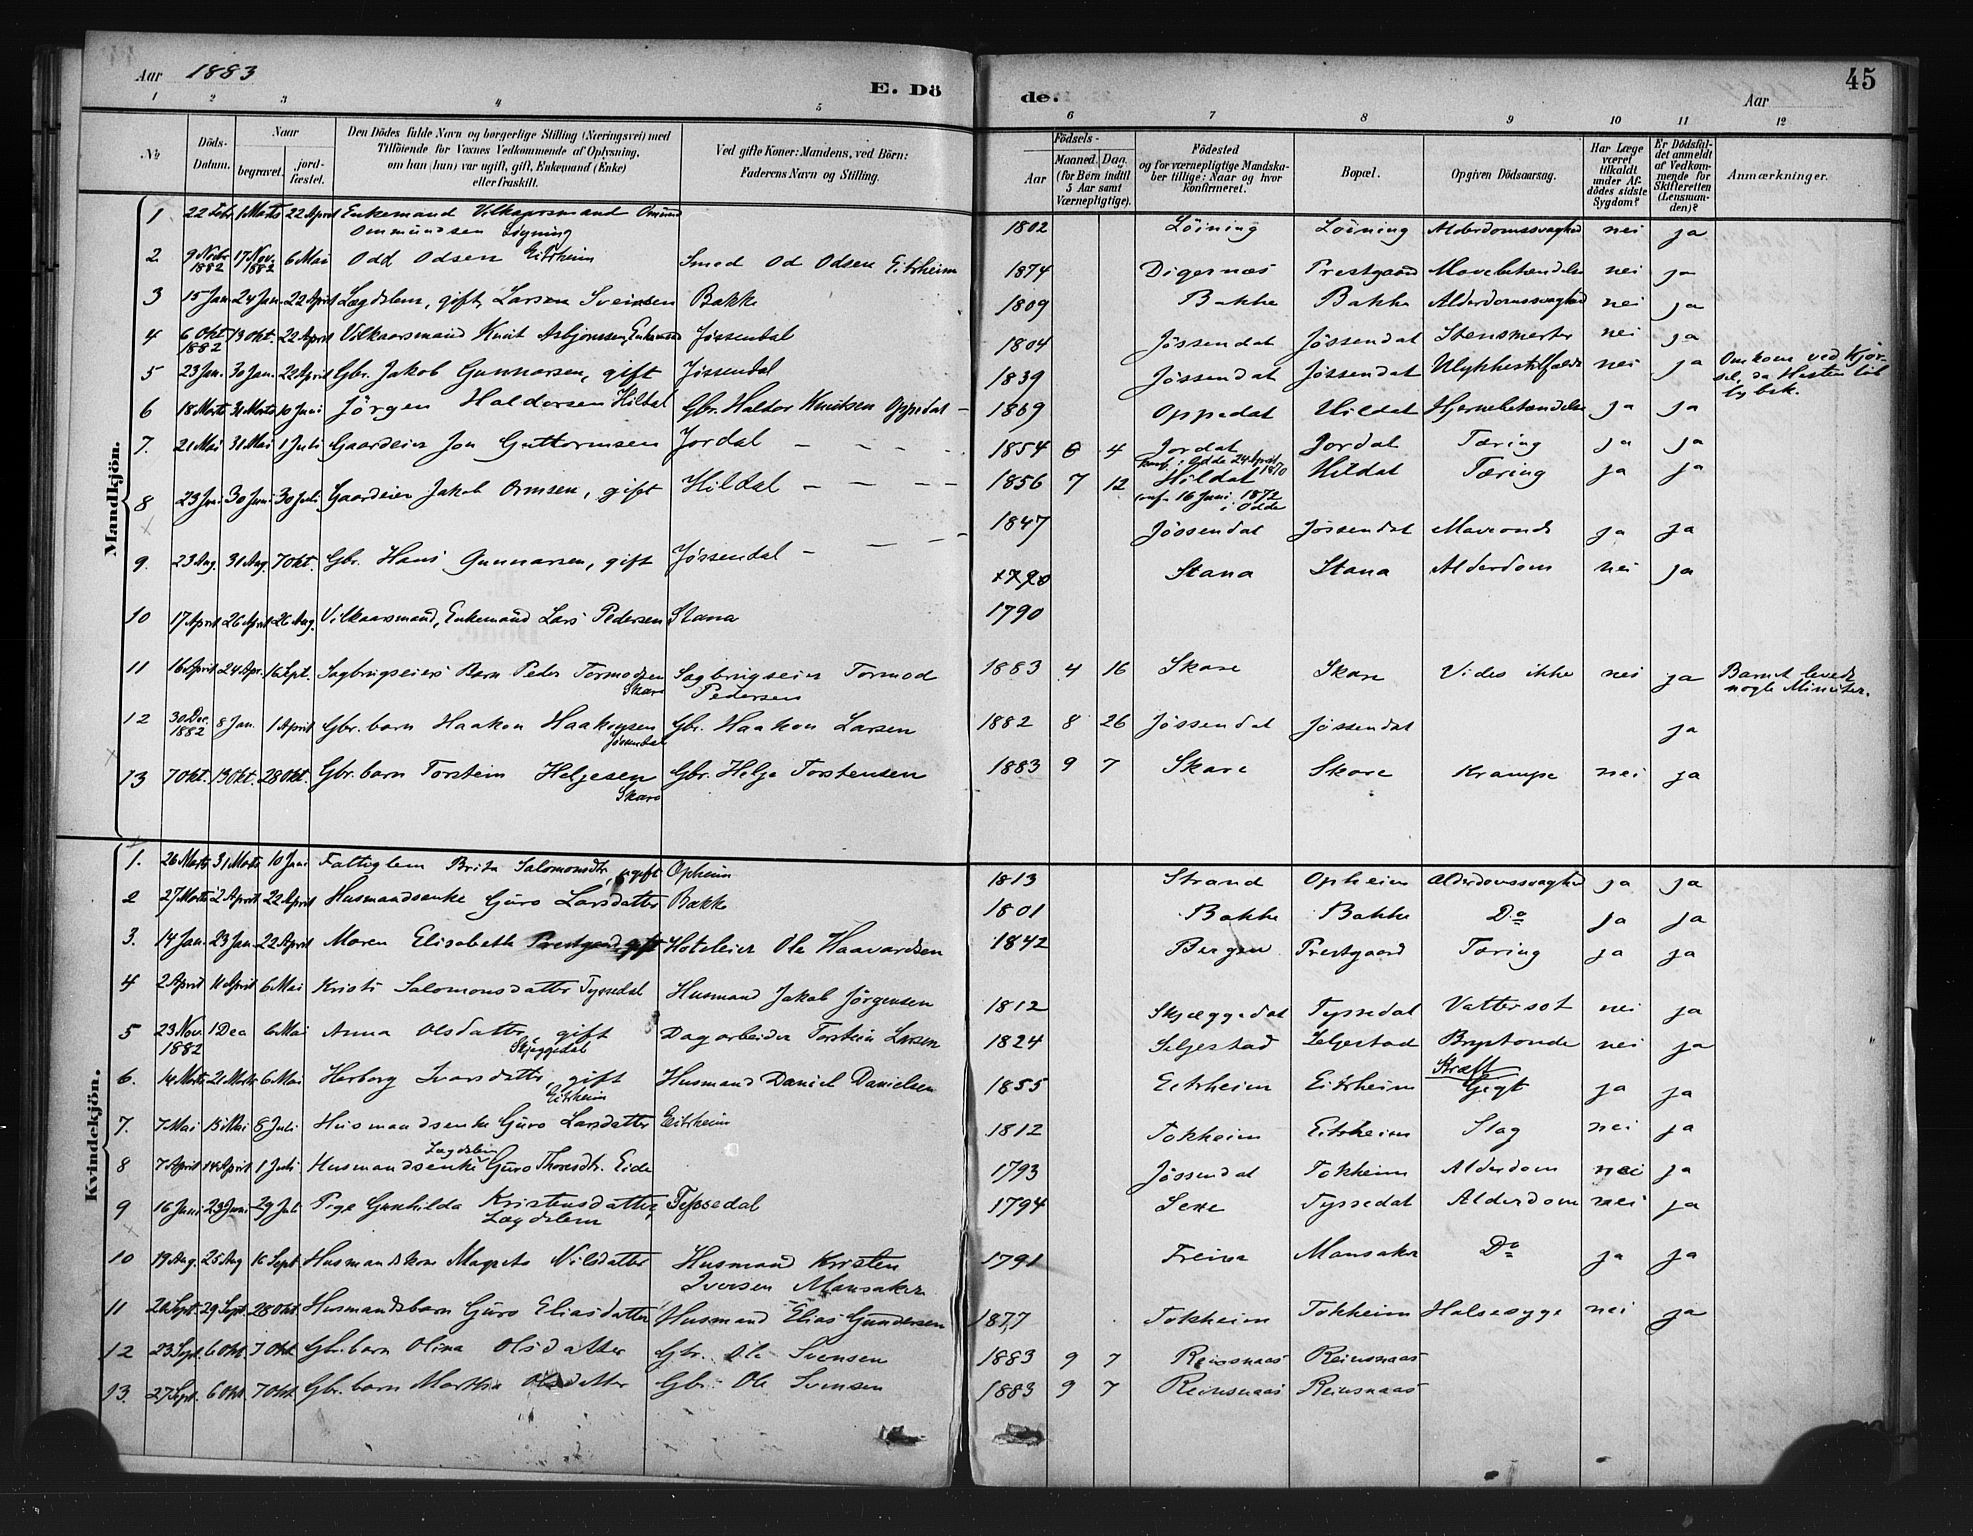 Aar 1883
E. Dö de.
Aar
45
1 2 3 4 5 6 7 8 9 10 11 12
No
Döds-Datum.
Naar
begravet.
jord-fæstet.
Den Dödes fulde Navn og borgerlige Stilling (Næringsvei) med
Tilföiende for Voxnes Vedkommende af Oplysning,
om han (hun) var ugift, gift, Enkemand (Enke)
eller fraskilt.
Ved gifte Koner: Mandens, ved Börn:
Faderens Navn og Stilling.
Födsels-
Aar
Maaned. Dag.
(for Börn indtil
5 Aar samt
Værnepligtige).
Födested
og for værnepligtige Mandska-
ber tillige: Naar og hvor
konfirmeret.
Bopæl.
Opgiven Dödsaarsag.
Har Læge
været
tilkaldt
under Af-
dödes sidste
Sygdom?
Er Dödsfal-
det anmeldt
af Vedkom-
mende for
Skifteretten
(Lensman-
den)?
Anmærkninger.
Mandkjön.
1 22 Febr. 1 Marts 22 April Enkemand Vilkaarsmand Omund
Ommundsen Löyning 1802 Löining Löining Alderdomssvaghed nei ja
2 9 Novbr 1882 17 Nov. 1882 6 Mai Odd Odsen Eitrheim Smed Od Odsen Eitrheim 1874 Digernæs Prestgaard Mavebetændelse nei ja
3 15 Jan. 24 Jan. 22 April Lægdslem, gift, Larsen Svensen Bakke 1809 Bakke Bakke Alderdomssvaghed nei ja
4 6 Okt. 1882 13 Okt. 22 April Vilkaarsmand Knut Asbjørnsen, Enkemand Jøssendal 1804 Jøssendal Jøssendal Stensmerter nei ja
5 23 Jan. 30 Jan. 22 April Gbr. Jakob Gunnarsen, gift Jøssendal 1839 Jøssendal Jøssendal Ulykkestilfælde nei ja Omkom ved Kjör-
sel, da Hesten löb
löbsk.
6 18 Marts 31 Marts 10 Juni Jörgen Haldorsen Hildal Gbr. Haldor Knutsen Oppedal 1869 Oppedal Hildal Hjernebetændelse ja ja
7. 21 Mai 31 Mai 1 Juli Gaardeier Jon Guttormsen Jordal 1854 6 4 Jordal Jordal Tæring ja ja
konf. i Odde 24 April 1870
8 23 Juni 30 Juni 30 Juli Gaardeier Jakob Ormsen, gift Hildal 1856 7 12 Hildal Hildal Tæring ja ja
conf. 16 Juni 1872
i Odde
9. 23 Aug. 31 Aug. 7 Okt. Gbr. Hans Gunnarsen, gift Jøssendal 1847 Jøssendal Jøssendal Maveonde ja ja
10 17 April 26 April 26 Aug. Vilkaarsmand, Enkemand Lars Pedersen Stana 1790 Stana Stana Alderdom nei ja
1790
11 16 April 24 Apr. 16 Sept. Sagbrugseiers Barn Peder Tormodsen
Skare Sagbrugseier Tormod
Pedersen 1883 4 16 Skare Skare Vides ikke nei ja Barnet levede
nogle Minuter.
12 30 Dec. 1882 8 Jan. 1 April Gbr. barn Haakon Haakonsen
Jøssendal Gbr. Haakon Larsen 1882 8 26 Jøssendal Jøssendal ja
13 7 Okt. 13 Okt. 28 Okt. Gbr. barn Torstein Helgesen
Skare Gbr. Helge Torstensen 1883 9 7 Skare Skare Krampe nei ja
Kvindekjön.
1. 26 Marts 31 Marts 10 Juni Fattiglem Brita Salomonsdtr, ugift Opheim 1813 Strand Opheim Alderdomssvaghed ja ja
2 27 Marts 2 April 22 April Husmandsenke Guro Larsdatter Bakke 1801 Bakke Bakke Do ja ja
3. 14 Jan. 23 Jan. 22 April Maren Elisabeth Prestgaard, gift Hoteleier Ole Haavardsen 1842 Bergen Prestgaard Tæring ja ja
4 2 April 11 April 6 Mai Kristi Salomonsdatter Tyssedal Husmand Jakob Jörgensen 1812 Skjæggedal Tyssedal Vattersot nei ja
5 23 Nov. 1882 1 Dec 6 Mai Anna Olsdatter, gift
Skjeggedal Dagarbeider Torstein Larsen 1824 Seljestad Seljestad Brystonde nei ja
6. 14 Marts 21 Marts 6 Mai Herborg Ivarsdatter, gift
Eitrheim Husmand Daniel Danielsen 1855 Eitrheim Eitrheim Gigt ja ja
7. 7 Mai 15 Mai 8 Juli Husmandsenke Guro Larsdatter Eitrheim 1812 Tokheim Eitrheim Slag nei ja
8 7 April 14 April 1 Juli Husmandsenke Lægdslem Guro Thoresdtr. Eide 1793 Jøssendal Tokheim Alderdom nei ja
9 16 Juni 23 Juni 29 Juli Pige Gunhilda Kristensdatter,
Lægdslem Tyssedal 1794 Sexe Tyssedal Alderdom nei ja
10 19 Aug. 25 Aug 16 Sept Husmandskone Magreta Nilsdatter Husmand Kristen
Iversen Mansaker 1791 Freim Mansaker Do ja ja
11 20 Sept. 29 Sept. 28 Okt. Husmandsbarn Guro Eliasdatter Husmand Elias Gundersen 1877 Tokheim Tokheim Halsesyge nei ja
12 23 Sept. 6 Okt. 7 Okt. Gbr. barn Olina Olsdatter Gbr. Ole Svensen 1883 9 7 Reinsnaas Reinsnaas
13. 27 Sept. 6 Okt. 7 Okt. Gbr. barn Martha Olsdatter Gbr. Ole Svensen 1883 9 7 Reinsnaas Reinsnaas